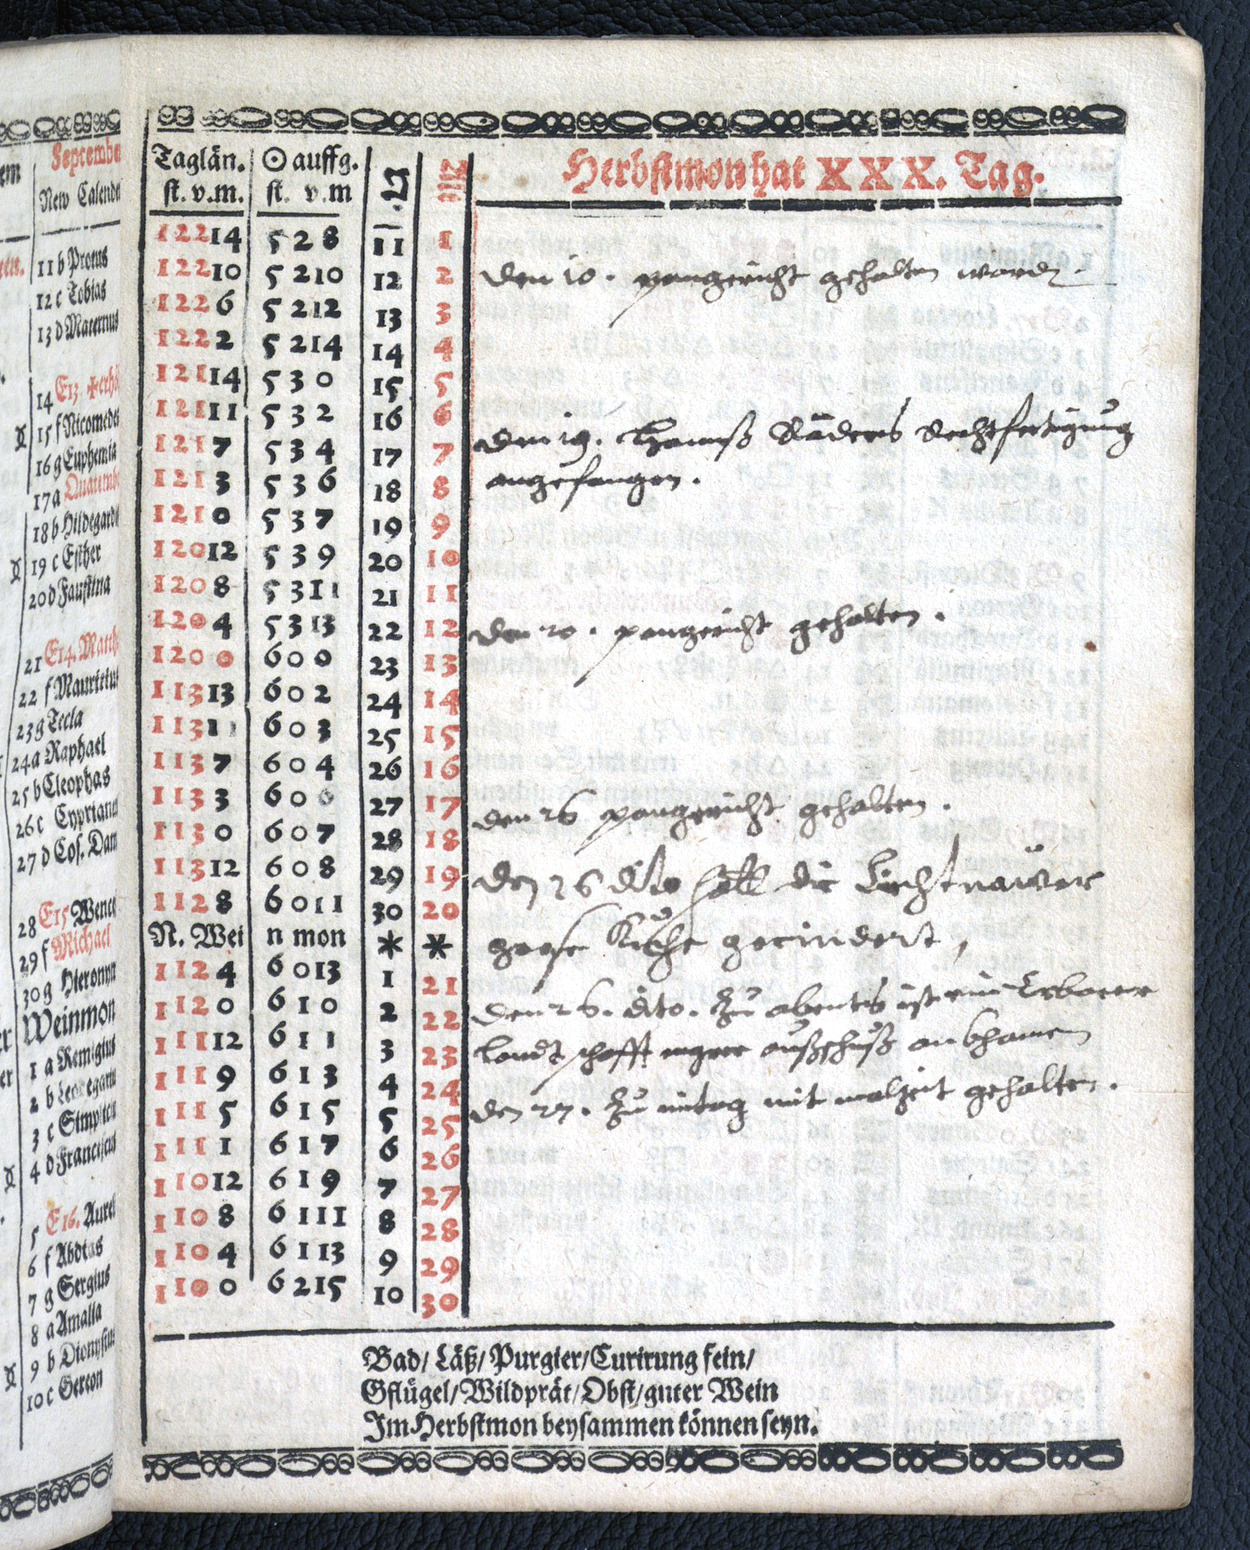 September
New Calend
11 b Protus
12 c Tobias
13 d Maternus
14 E13. ✠erhö
15 f Nicomedes
16 g Euphemia
17 a Quatemb
18 b Hildegard
19 c Esther
20 d Faustina
21 E14. Matth
22 f Mauritius
23 g Tecla
24 a Raphael
25 b Cleophas
26 c Cyprian
27 d Cos. Dam
28 E15 Wence
29 f Michael
30 g Hieronym
Weinmon
1 a Remigius
2 b Leodegari
3 c Simplici
4 d Franciscus
5 E16. Aurel
6 f Abdias
7 g Sergius
8 a Amalia
9 b Dionysius
10 c Gereon
Herbstmon hat XXX. Tag.
Taglän. ☉ auffg.
st. v. m. st. v. m
12 2 14 5 2 8 11 1
12 2 10 5 2 10 12 2
12 2 6 5 2 12 13 3
12 2 2 5 2 14 14 4
12 1 14 5 3 0 15 5
12 1 11 5 3 2 16 6
12 1 7 5 3 4 17 7
12 1 3 5 3 6 18 8
12 1 0 5 3 7 19 9
12 0 12 5 3 9 20 10
12 0 8 5 3 11 21 11
12 0 4 5 3 13 22 12
12 0 0 6 0 0 23 13
11 3 13 6 0 2 24 14
11 3 11 6 0 3 25 15
11 3 7 6 0 4 26 16
11 3 3 6 0 6 27 17
11 3 0 6 0 7 28 18
11 3 12 6 0 8 29 19
11 2 8 6 0 11 30 20
N. Wei n mon * *
11 2 4 6 0 13 1 21
11 2 0 6 1 0 2 22
11 1 12 6 1 1 3 23
11 1 9 6 1 3 4 24
11 1 5 6 1 5 5 25
11 1 1 6 1 7 6 26
11 0 12 6 1 9 7 27
11 0 8 6 1 11 8 28
11 0 4 6 1 13 9 29
11 0 0 6 2 15 10 30
den 10. pangericht gehalten
den 19. Hannß Rechtfertigung
angefangen.
den 20. pangericht gehalten.
den 26 pangericht gehalten.
den 26 dito die
große Kirche
den 26. dito. Zu abents ist ein Erbarer
Landtschafft außschuß ankhamen
den 27. Zu mitag mit malzeit gehalten.
Bad/ Läß/ Purgier/Curirung fein/
Gflügel/Wildprät/Obst/guter Wein
Im Herbstmon beysammen können seyn.